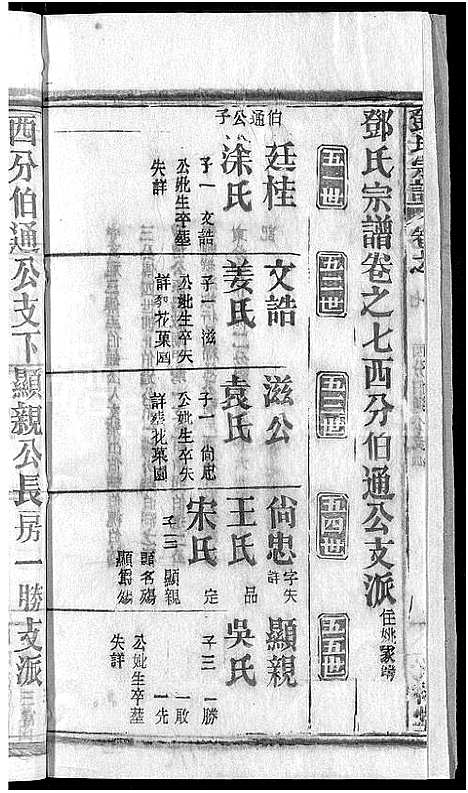 鄧氏宗譜
卷之
鄧氏宗譜卷之七西分伯通公支派
五一世
五二世
五三世
五四世
五五世
伯通公子
廷桂
涂氏
子一 文誥
公妣生卒塟
失詳
文誥
姜氏
子一 滋
公妣生卒失
詳塟花菓園
滋公
袁氏
子一 尙忠
公妣生卒失
詳塟花菓園
尙忠 字失詳
王氏
宋氏
子三 顯親
顯親
吳氏
子三 一勝
一敢
一先
公妣生卒塟
失詳
西分伯通公支下顯親公長房一勝支派